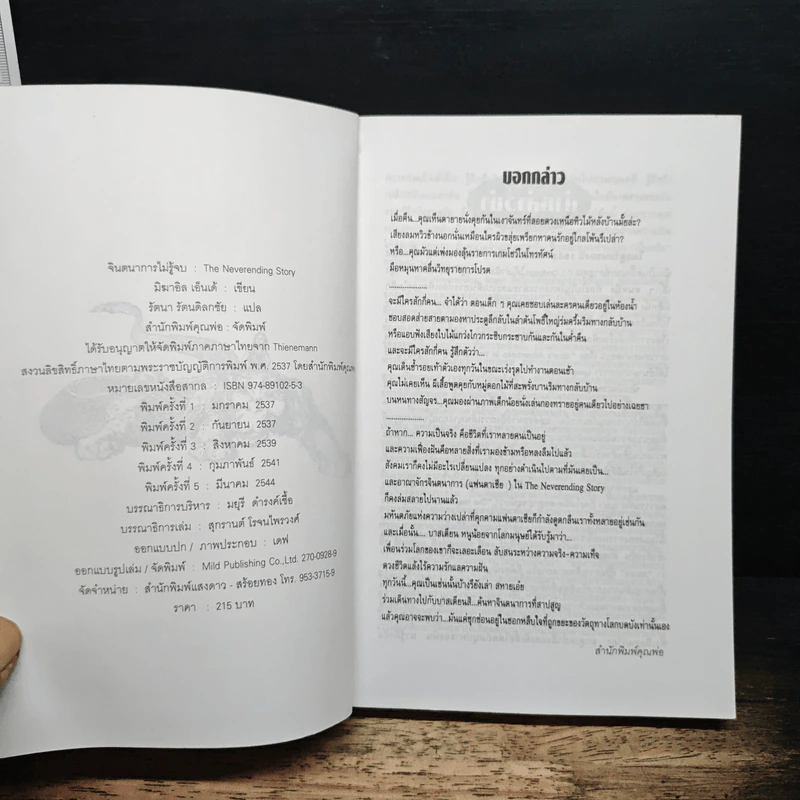 จินตนาการไม่รู้จบ : The Neverending Story
มิฆาอิล เอ็นเด้ : เขียน
รัตนา รัตนดิลกชัย : แปล
สำนักพิมพ์คุณพ่อ : จัดพิมพ์
ได้รับอนุญาตให้จัดพิมพ์ภาคภาษาไทยจาก Thienemann
สงวนลิขสิทธิ์ภาษาไทยตามพระราชบัญญัติการพิมพ์ พ.ศ. 2537 โดยสำนักพิมพ์คุณพ่อ
หมายเลขหนังสือสากล : ISBN 974-89102-5-3
พิมพ์ครั้งที่ 1 : มกราคม 2537
พิมพ์ครั้งที่ 2 : กันยายน 2537
พิมพ์ครั้งที่ 3 : สิงหาคม 2539
พิมพ์ครั้งที่ 4 : กุมภาพันธ์ 2541
พิมพ์ครั้งที่ 5 : มีนาคม 2544
บรรณาธิการบริหาร : มยุรี ดำรงค์เชื้อ
บรรณาธิการเล่ม : สุกรานต์ โรจนไพรวงศ์
ออกแบบปก / ภาพประกอบ : เดฟ
ออกแบบรูปเล่ม / จัดพิมพ์ : Mild Publishing Co.,Ltd. 270-0928-9
จัดจำหน่าย : สำนักพิมพ์แสงดาว - สร้อยทอง โทร. 953-3715-9
ราคา : 215 บาท
บอกกล่าว
เมื่อคืน...คุณเห็นตายายนั่งคุยกันในเงาจันทร์ที่ลอยดวงเหนือทิวไม้หลังบ้านมั้ยล่ะ?
เสียงลมหวิวข้างนอกนั่นเหมือนใครผิวขลุ่ยเพรียกหาคนรักอยู่ไกลโพ้นรึเปล่า?
หรือ...คุณมัวแต่เพ่งมองลุ้นรายการเกมโชว์ในโทรทัศน์
มือหมุนหาคลื่นวิทยุรายการโปรด
....................
จะมีใครสักกี่คน... จำได้ว่า ตอนเด็ก ๆ คุณเคยชอบเล่นละครคนเดียวอยู่ในห้องน้ำ
ชอบสอดส่ายสายตามองหาประตูลึกลับในลำต้นโพธิ์ใหญ่ร่มครึ้มริมทางกลับบ้าน
หรือแอบฟังเสียงใบไม้แกว่งไกวกระซิบกระซาบกันและกันในค่ำคืน
และจะมีใครสักกี่คน รู้สึกตัวว่า...
คุณเดินซ้ำรอยเท้าตัวเองทุกวันในขณะเร่งรุดไปทำงานตอนเช้า
คุณไม่เคยเห็น ผีเสื้อพูดคุยกับหมู่ดอกไม้ที่สะพรั่งบานริมทางกลับบ้าน
บนหนทางสัญจร...คุณมองผ่านภาพเด็กน้อยนั่งเล่นกองทรายอยู่คนเดียวไปอย่างเฉยชา
....................
ถ้าหาก... ความเป็นจริง คือชีวิตที่เราหลายคนเป็นอยู่
และความเฟื่องฝันคือหลายสิ่งที่เรามองข้ามหรือหลงลืมไปแล้ว
สังคมเราก็คงไม่มีอะไรเปลี่ยนแปลง ทุกอย่างดำเนินไปตามที่มันเคยเป็น...
และอาณาจักรจินตนาการ (แฟนตาเซีย ) ใน The Neverending Story
ก็คงล่มสลายไปนานแล้ว
มหันตภัยแห่งความว่างเปล่าที่คุกคามแฟนตาเซียก็กำลังดูดกลืนเราทั้งหลายอยู่เช่นกัน
และเมื่อนั้น.... บาสเตียน หนูน้อยจากโลกมนุษย์ได้รับรู้มาว่า...
เพื่อนร่วมโลกของเขาก็จะเลอะเลือน สับสนระหว่างความจริง-ความเท็จ
ดวงชีวิตแล้งไร้ความรักแลความฝัน
ทุกวันนี้...คุณเป็นเช่นนั้นบ้างรึยังเล่า สหายเอ๋ย
ร่วมเดินทางไปกับบาสเตียนสิ...ค้นหาจินตนาการที่สาปสูญ
แล้วคุณอาจจะพบว่า...มันแค่ซุกซ่อนอยู่ในซอกหลืบใจที่ถูกขยะของวัตถุทางโลกบดบังเท่านั้นเอง
สำนักพิมพ์คุณพ่อ